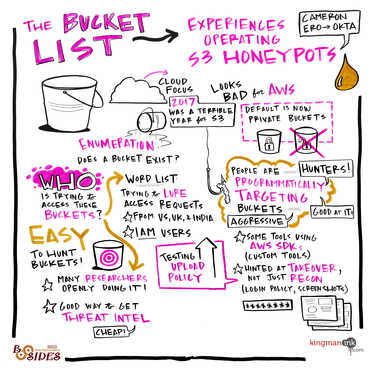 THE BUCKET
LIST
EXPERIENCES
OPERATING
S3 HONEYPOTS
CAMERON
ERO → OKTA
CLOUD
FOCUS
2017
WAS A TERRIBLE
YEAR for S3
LOOKS
BAD for AWS
DEFAULT IS NOW
PRIVATE BUCKETS
ENUMERATION
DOES A BUCKET EXIST?
WHO
IS TRYING to
ACCESS THESE
BUCKETS?
WORD LIST
TRYING to LURE
ACCESS REQUESTS
FROM US, UK, & INDIA
IAM USERS
PEOPLE ARE
PROGRAMMATICALLY
TARGETING
BUCKETS
HUNTERS!
AGGRESSIVE
GOOD at IT!
EASY
TO HUNT
BUCKETS!
MANY RESEARCHERS
OPENLY DOING IT!
GOOD WAY to GET
THREAT INTEL
CHEAP!
TESTING
UPLOAD
POLICY
SOME TOOLS USING
AWS SDKs
(CUSTOM TOOLS)
HINTED at TAKEOVER,
NOT JUST RECON
(LOGIN POLICY, SCREENSHOTS)
********
BSIDES
kingmanink.com